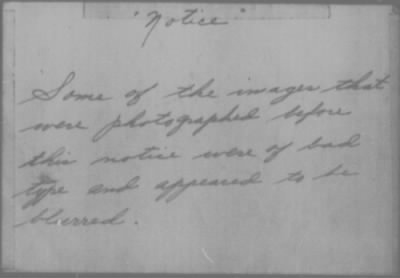 "Notice"
Some of the images that
were photographed before
this notice were of bad
type and appeared to be
blurred.